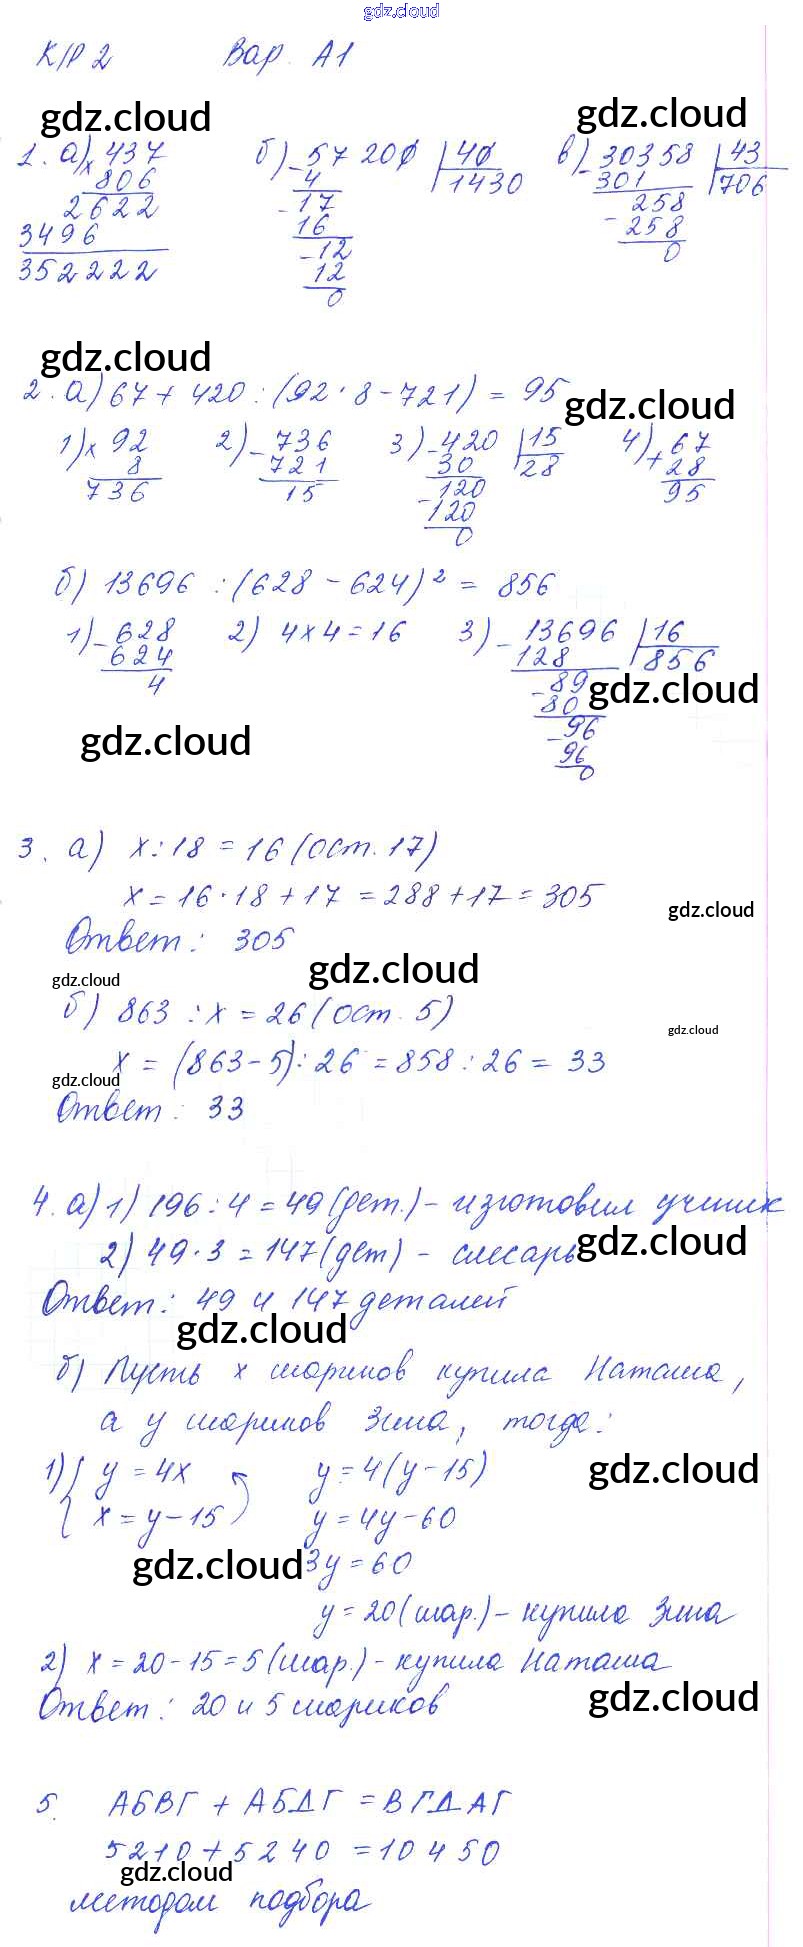 gdz.cloud
К/Р 2 Вар. А1
gdz.cloud gdz.cloud
1. а) × 437 б) - 57 200 | 40 в) - 30358 | 43
806 4 1430 301 706
2622 - 17 258
3496 16 - 258
352222 - 12 0
12
0
gdz.cloud
2. а) 67 + 420 : (92 · 8 - 721) = 95
gdz.cloud
1) × 92 2) - 736 3) - 420 | 15 4) + 67
8 721 30 28 28
736 15 120 95
- 120
0
б) 13696 : (628 - 624)² = 856
1) - 628 2) 4 × 4 = 16 3) - 13696 | 16
624 128 856
4 - 89 gdz.cloud
80
gdz.cloud - 96
96
0
3. а) x : 18 = 16 (ост. 17)
x = 16 · 18 + 17 = 288 + 17 = 305
gdz.cloud
Ответ: 305
gdz.cloud gdz.cloud
б) 863 : x = 26 (ост. 5)
gdz.cloud
x = (863 - 5) : 26 = 858 : 26 = 33
gdz.cloud
Ответ: 33
4. а) 1) 196 : 4 = 49 (дет.) - изготовил ученик
2) 49 · 3 = 147 (дет) - слесарь
gdz.cloud
Ответ: 49 и 147 деталей
gdz.cloud
б) Пусть x шариков купила Наташа,
а y шариков Зина, тогда:
1) { y = 4x y = 4(y - 15)
gdz.cloud
x = y - 15 y = 4y - 60
gdz.cloud 3y = 60
y = 20 (шар.) - купила Зина
2) x = 20 - 15 = 5 (шар.) - купила Наташа
gdz.cloud
Ответ: 20 и 5 шариков
5. АБВГ + АБДГ = ВГДАГ
5210 + 5240 = 10450
gdz.cloud
методом подбора